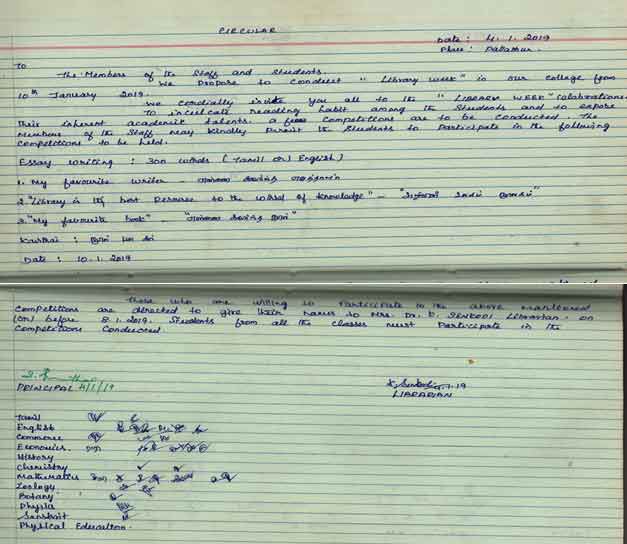 CIRCULAR
Date : 4.1.2019
Place:
To
The Members of the Staff and Students.
We Propose to conduct "Library week" in our college from
10th January 2019.
We cordially invite you all to the "LIBRARY WEEK" Celebrations
To inculcate reading habit among the Students and to expose
Their inherent academic talents. a few Competitions are to be conducted. The
Members of the Staff may kindly Permit the Students to Participate in the following
Competitions to be held.
Essay writing : 300 words (Tamil (or) English)
1. My favourite writer -
2. "Library is the best to the world of knowledge" -
3. "My favourite book" -
Date : 10.1.2019
Those who are willing to Participate in the above mentioned
Competitions are directed to give their names to Mrs. Dr. K. SENKODI Librarian. on
(or) before 8.1.2019. Students from all the classes must Participate in the
Competitions Conducted.
PRINCIPAL 4/1/19
LIBRARIAN
Tamil
English
Commerce
Economics
History
Chemistry
Mathematics
Zoology
Botany
Physics
Sanskrit
Physical Education.